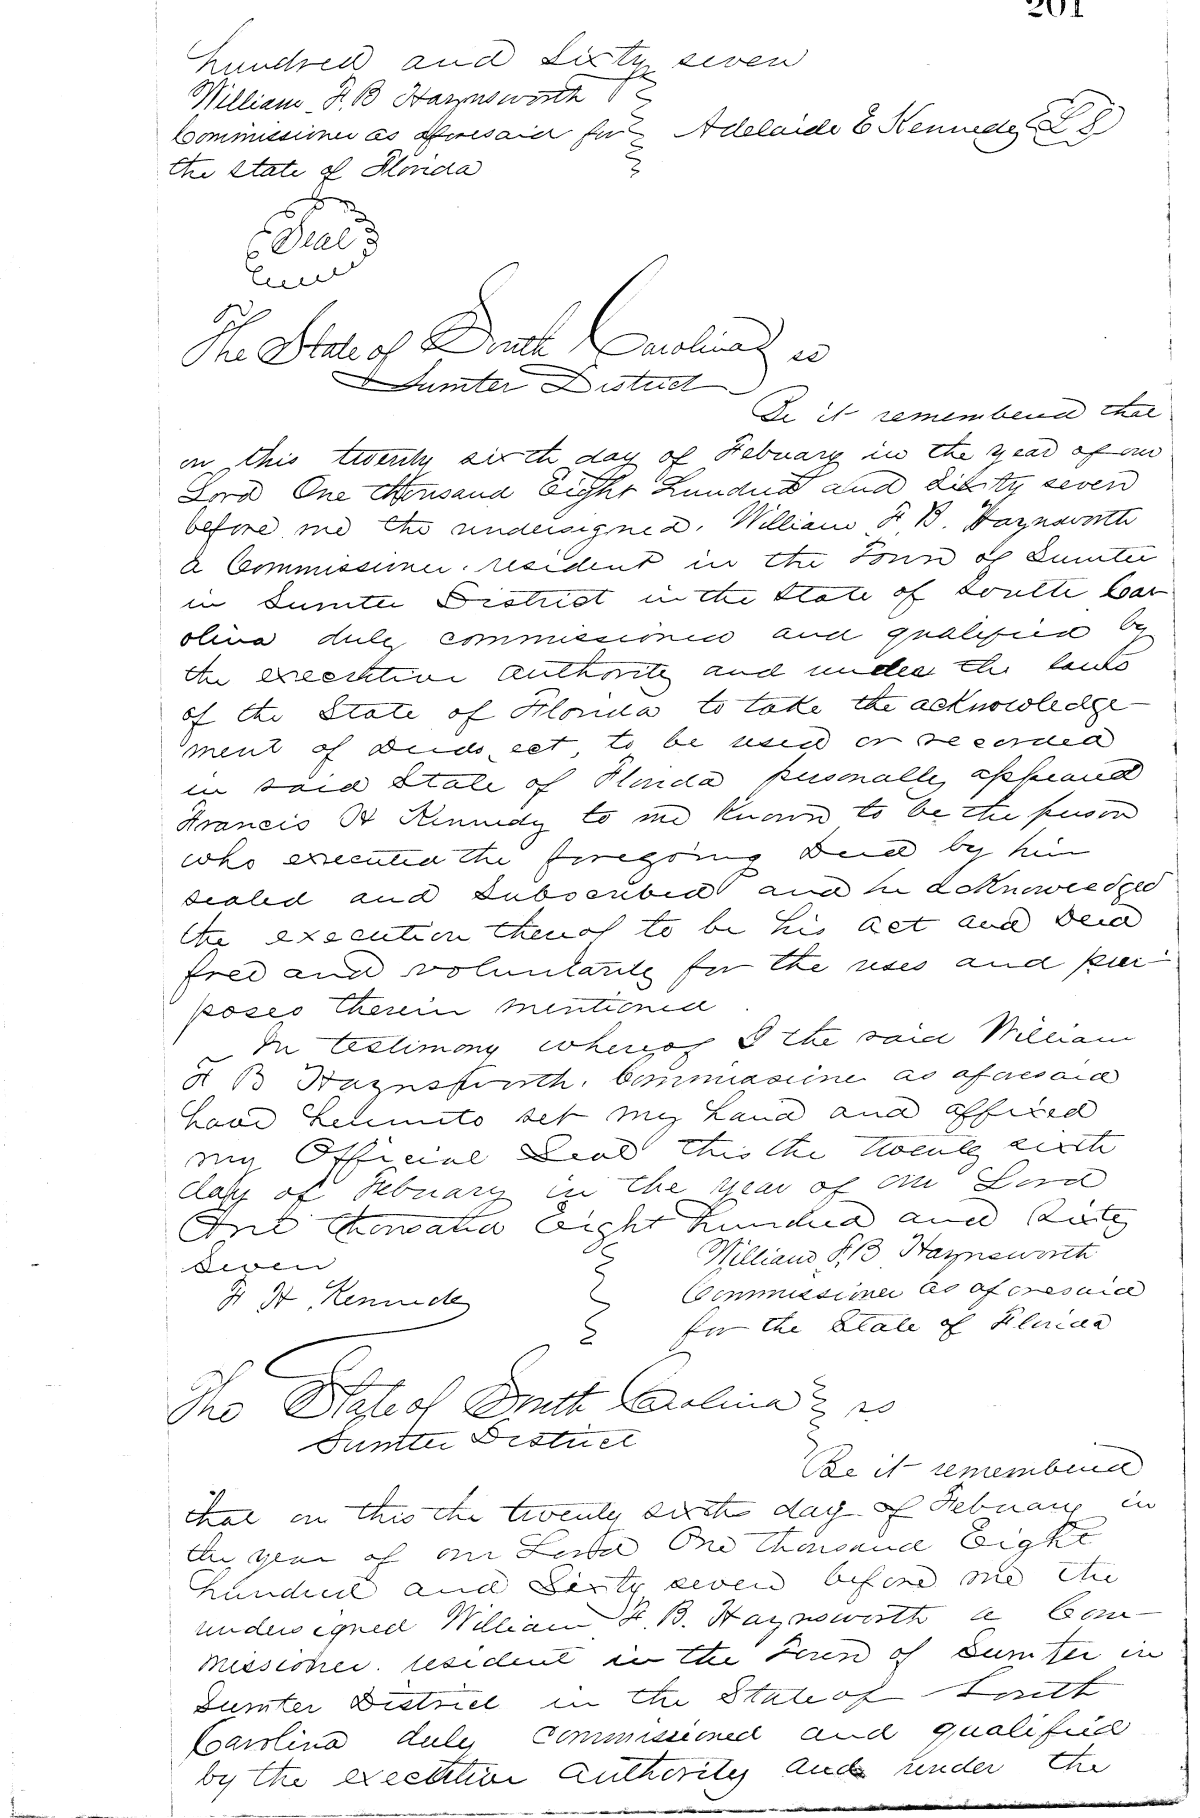 201
hundred and Sixty seven
William F. B Haynsworth
Commissioner as aforesaid for Adelaide E Kennedy L S
the State of Florida
Seal
The State of South Carolina ss
Sumter District
Be it remembered that
on this twenty sixth day of Febuary in the year of our
Lord One thousand Eight hundred and Sixty seven
before me the undersigned. William F. B. Haynsworth
a Commissioner. resident in the Town of Sumter
in Sumter District in the State of South Car
olina duly commissioned and qualified by
the executive authority and under the laws
of the State of Florida to take the acknowledge-
ment of deeds, ect, to be used or recorded
in said State of Florida personally appeared
Francis H Kennedy to me Known to be the person
who executed the foregoing Deed by him
sealed and Subscribed and he acknowledged
the execution thereof to be his act and Deed
free and voluntarily for the uses and pur-
poses therein mentioned
In testimony whereof I the said William
F B Haynsworth. Commissioner as aforesaid
have hereunto set my hand and affixed
my Official Seal this the twenty sixth
day of Febuary in the year of our Lord
One thousand Eight hundred and Sixty
Seven William F. B Haynsworth
F H. Kennedy Commissioner as aforesaid
for the State of Florida
The State of South Carolina ss
Sumter District
Be it remembered
that on this the twenty sixth day of Febuary in
the year of our Lord One thousand Eight
hundred and Sixty seven before me the
undersigned William F. B. Haynsworth a Com-
missioner. resident in the Town of Sumter in
Sumter District in the State of South
Carolina duly commissioned and qualified
by the executive authority and under the